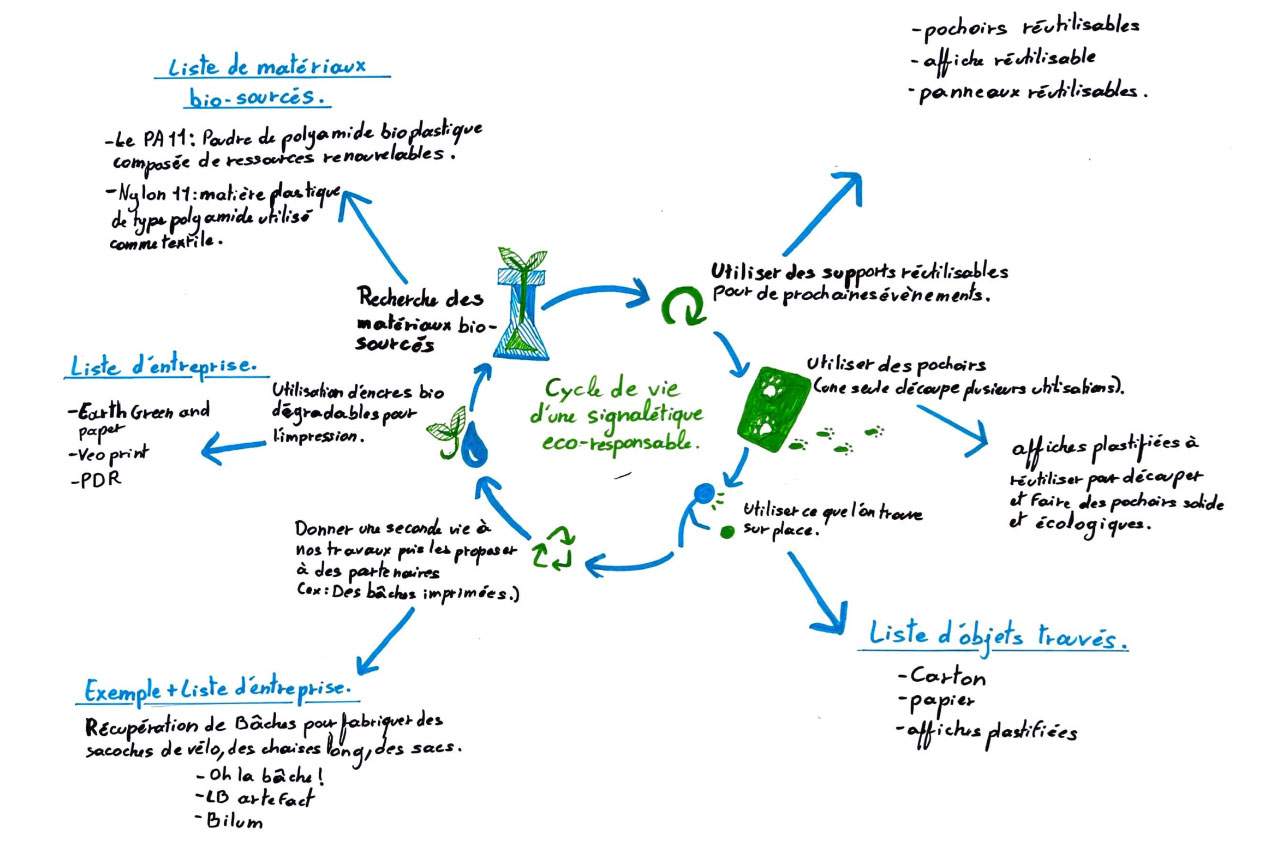 -pochoirs réutilisables
-affiche réutilisable
-panneaux réutilisables.
Liste de matériaux
bio-sourcés.
-Le PA11: Poudre de polyamide bioplastique
composée de ressources renouvelables.
-Nylon 11: matière plastique
de type polyamide utilisé
comme textile.
Recherche des
matériaux bio-
sourcés
Utiliser des supports réutilisables
pour de prochaines évènements.
Utiliser des pochoirs
(une seule découpe plusieurs utilisations).
affiches plastifiées à
réutiliser pour découper
et faire des pochoirs solide
et écologiques.
Cycle de vie
d'une signalétique
eco-responsable.
Liste d'entreprise.
-Earth Green and
paper
-Veoprint
-PDR
Utilisation d'encres bio
dégradables pour
l'impression.
Utiliser ce que l'on trouve
sur place.
Donner une seconde vie à
nos travaux puis les proposer
à des partenaires
(ex: Des bâches imprimées.)
Liste d'objets trouvés.
-Carton
-papier
-affiches plastifiées
Exemple+Liste d'entreprise.
Récupération de Bâches pour fabriquer des
sacoches de vélo, des chaises long, des sacs.
-Oh la bâche!
-LB artefact
-Bilum